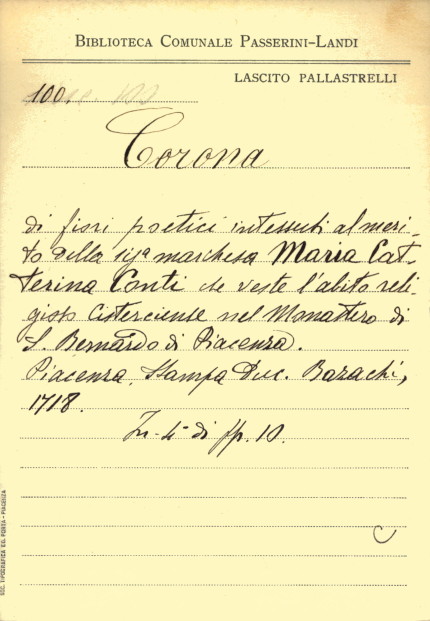 BIBLIOTECA COMUNALE PASSERINI-LANDI
LASCITO PALLASTRELLI
100.
Corona
di fiori poetici intessuti al meri-
to della sigª marchesa Maria Cat-
terina Conti che veste l'abito reli-
gioso cisterciense nel Monastero di
S. Bernardo di Piacenza.
Piacenza, Stampa Duc. Bazachi,
1718.
In-4° di pp. 10.
C
SOC. TIPOGRAFICA ED. PORTA - PIACENZA